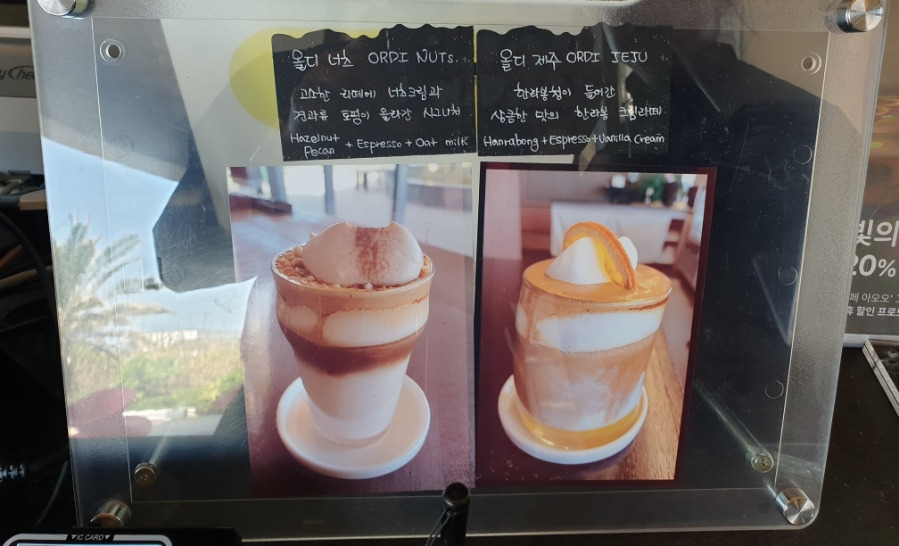 올디 너츠 ORDI NUTS.
고소한 라떼에 너츠크림과
견과류 토핑이 올라간 시그니처
Hazelnut
Pecan + Espresso + Oat milk
올디 제주 ORDI JEJU
한라봉청이 들어간
상큼한 맛의 한라봉 크림라떼
Hanrabong + Espresso + Vanilla Cream
빛의
20%
▼IC CARD▼